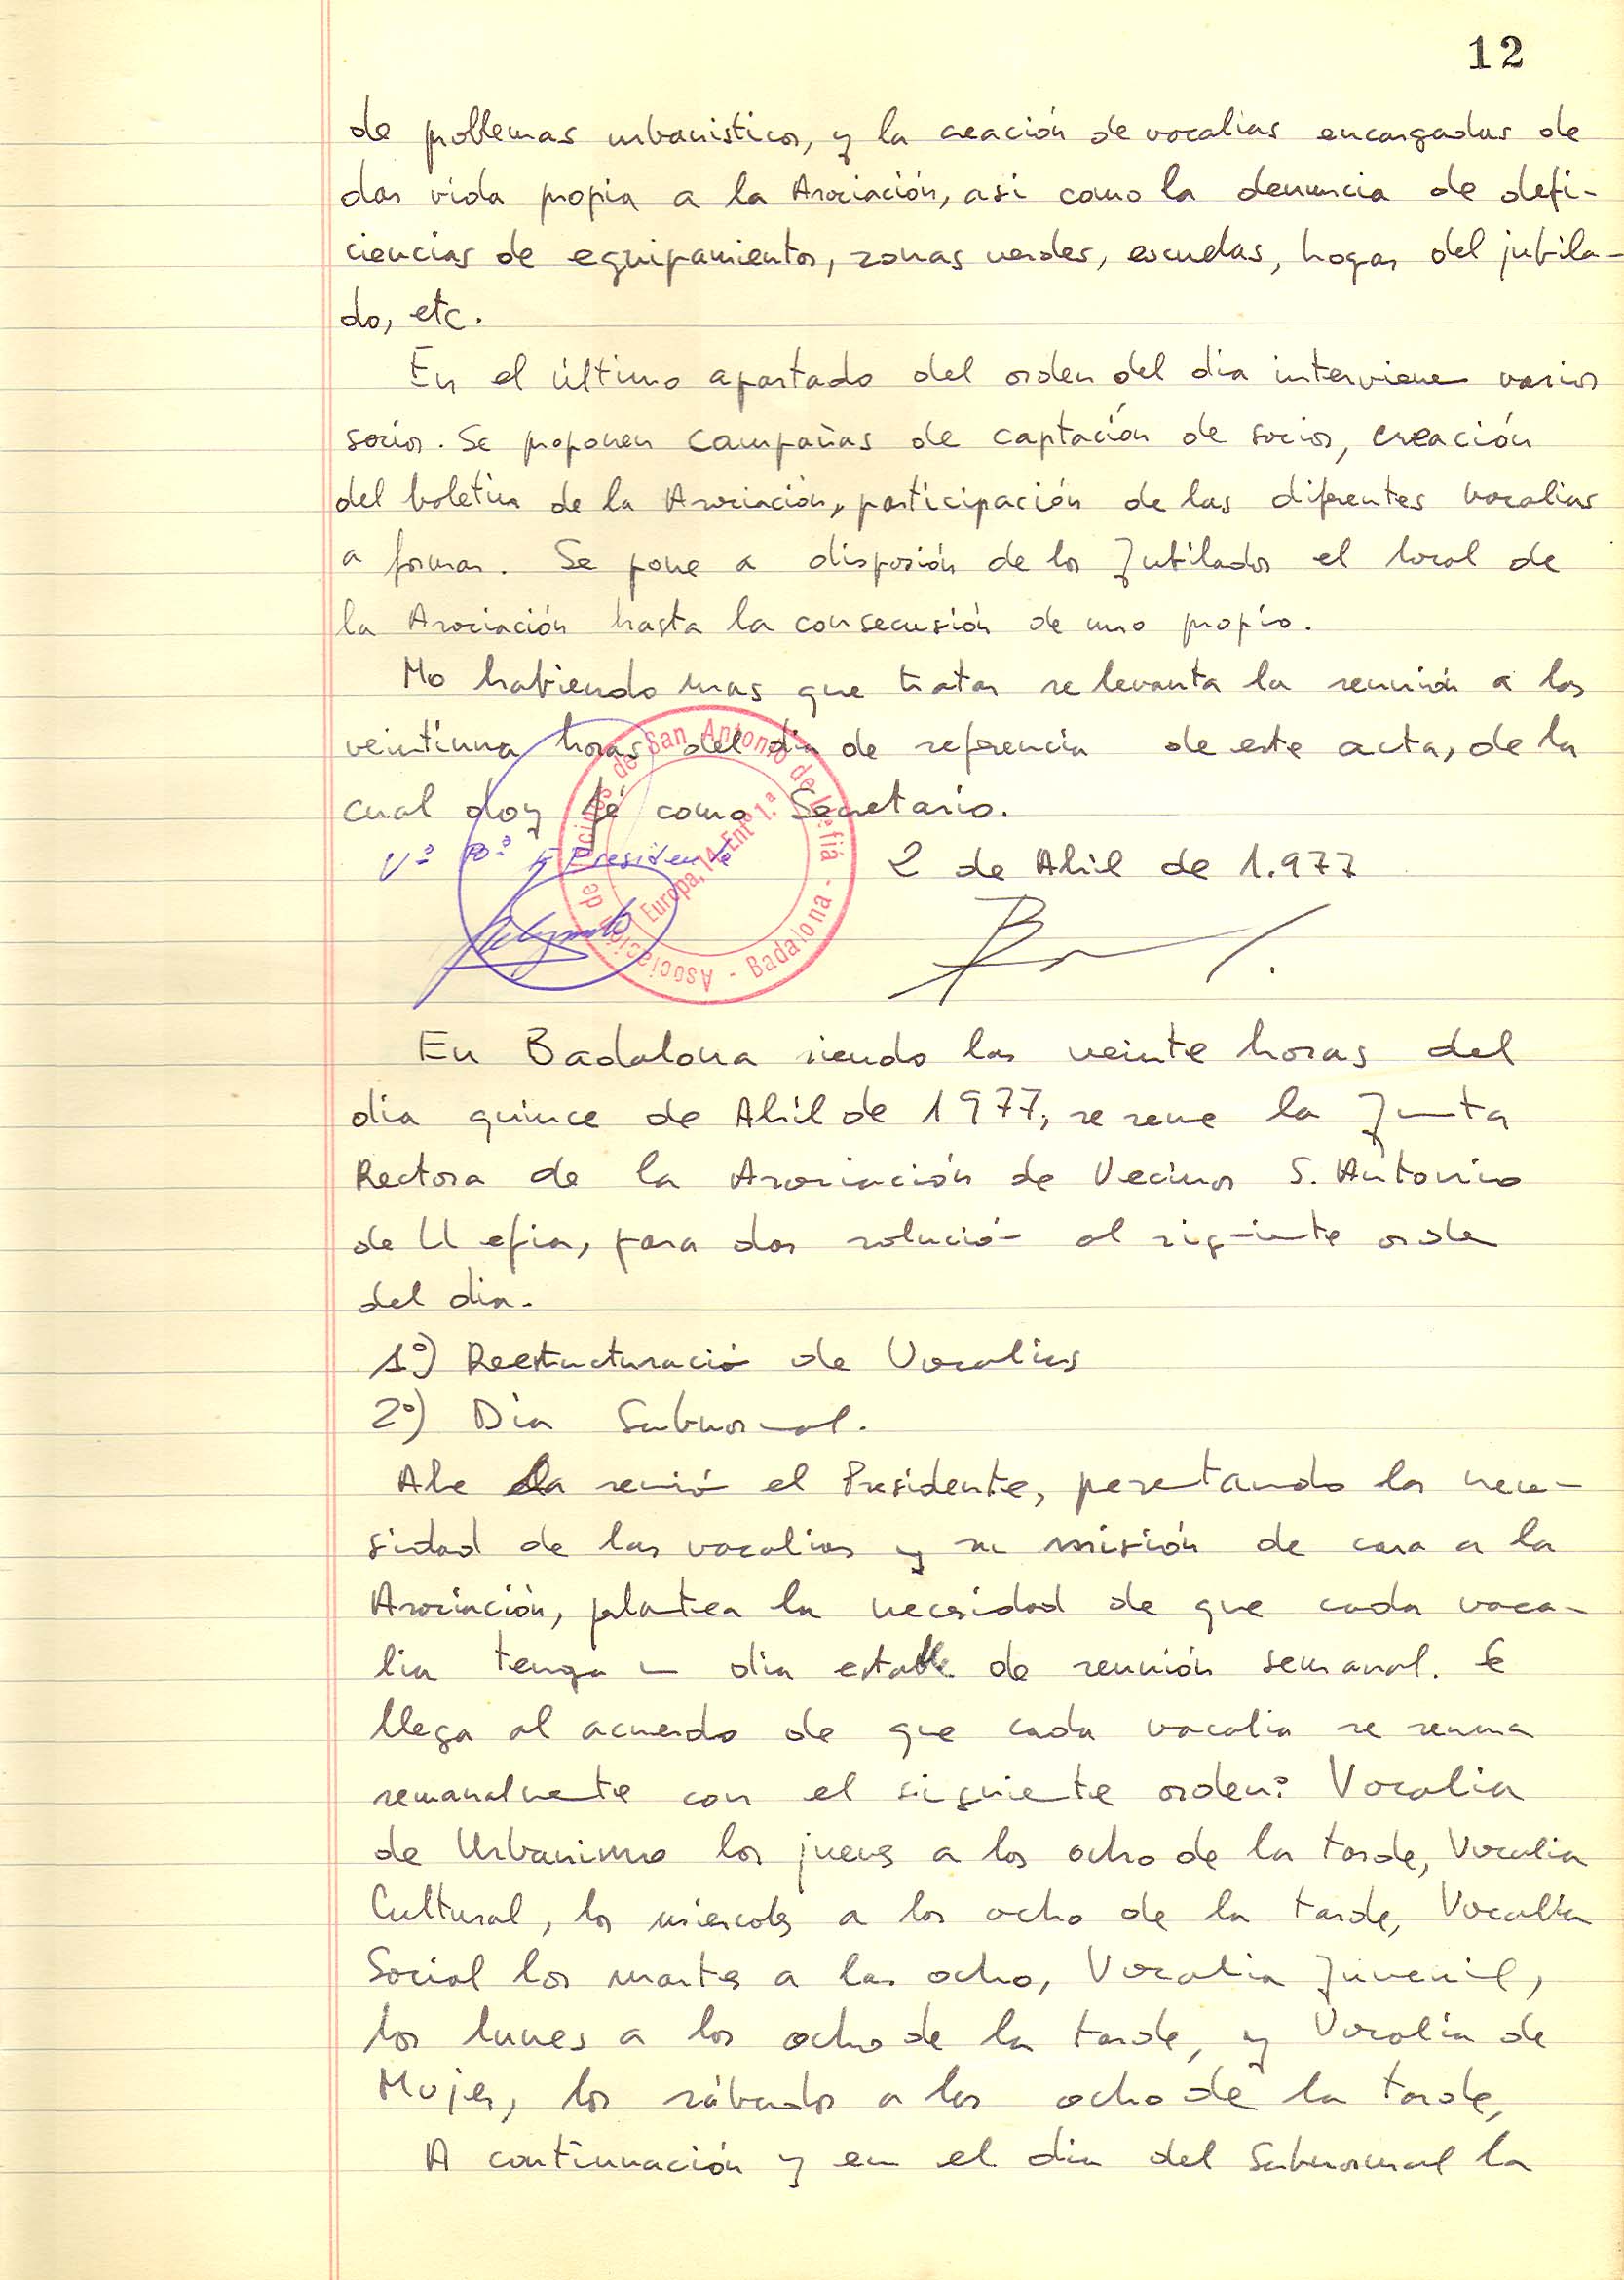 12
de problemas urbanisticos, y la creación de vocalias encargadas de
dar vida propia a la Asociación, asi como la denuncia de defi-
ciencias de equipamientos, zonas verdes, escuelas, hogar del jubila-
do, etc.
En el último apartado del orden del dia intervienen varios
socios. Se proponen campañas de captación de socios, creación
del boletin de la Asociación, participación de las diferentes vocalias
a formar. Se pone a disposión de los Jubilados el local de
la Asociación hasta la consecusión de uno propio.
No habiendo mas que tratar se levanta la reunión a las
veintiuna horas del dia de referencia de este acta, de la
cual doy fé como Secretario.
Vº Bº El Presidente
2 de Abril de 1.977
Asociación de Vecinos de San Antonio de Llefiá - Badalona -
Europa, 14, Entº 1.ª
En Badalona siendo las veinte horas del
dia quince de Abril de 1977, se reune la Junta
Rectora de la Asociación de Vecinos S. Antonio
de Llefia, para dar solución al siguiente orden
del dia.
1º) Reestructuración de Vocalias
2º) Dia Subnormal.
Abre la reunión el Presidente, presentando la nece-
sidad de las vocalias y su misión de cara a la
Asociación, plantea la necesidad de que cada voca-
lia tenga un dia estable de reunión semanal. Se
llega al acuerdo de que cada vocalia se reuna
semanalmente con el siguiente orden: Vocalia
de Urbanismo los jueves a las ocho de la tarde, Vocalia
Cultural, los miercoles a las ocho de la tarde, Vocalia
Social los martes a las ocho, Vocalia Juvenil,
los lunes a las ocho de la tarde, y Vocalia de
Mujer, los sábados a las ocho de la tarde,
A continuación y en el dia del Subnormal la